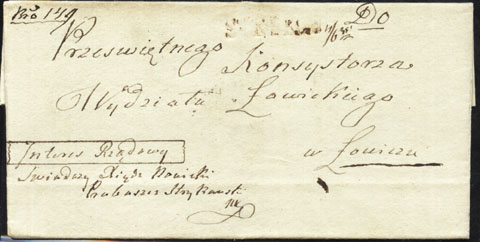 Nro 149
Do
Przeświętnego
Konsystorza
Wydziału Łowickiego
w Łowiczu
Interes Rządowy
Świadczy Xiądz Nowicki
Proboszcz